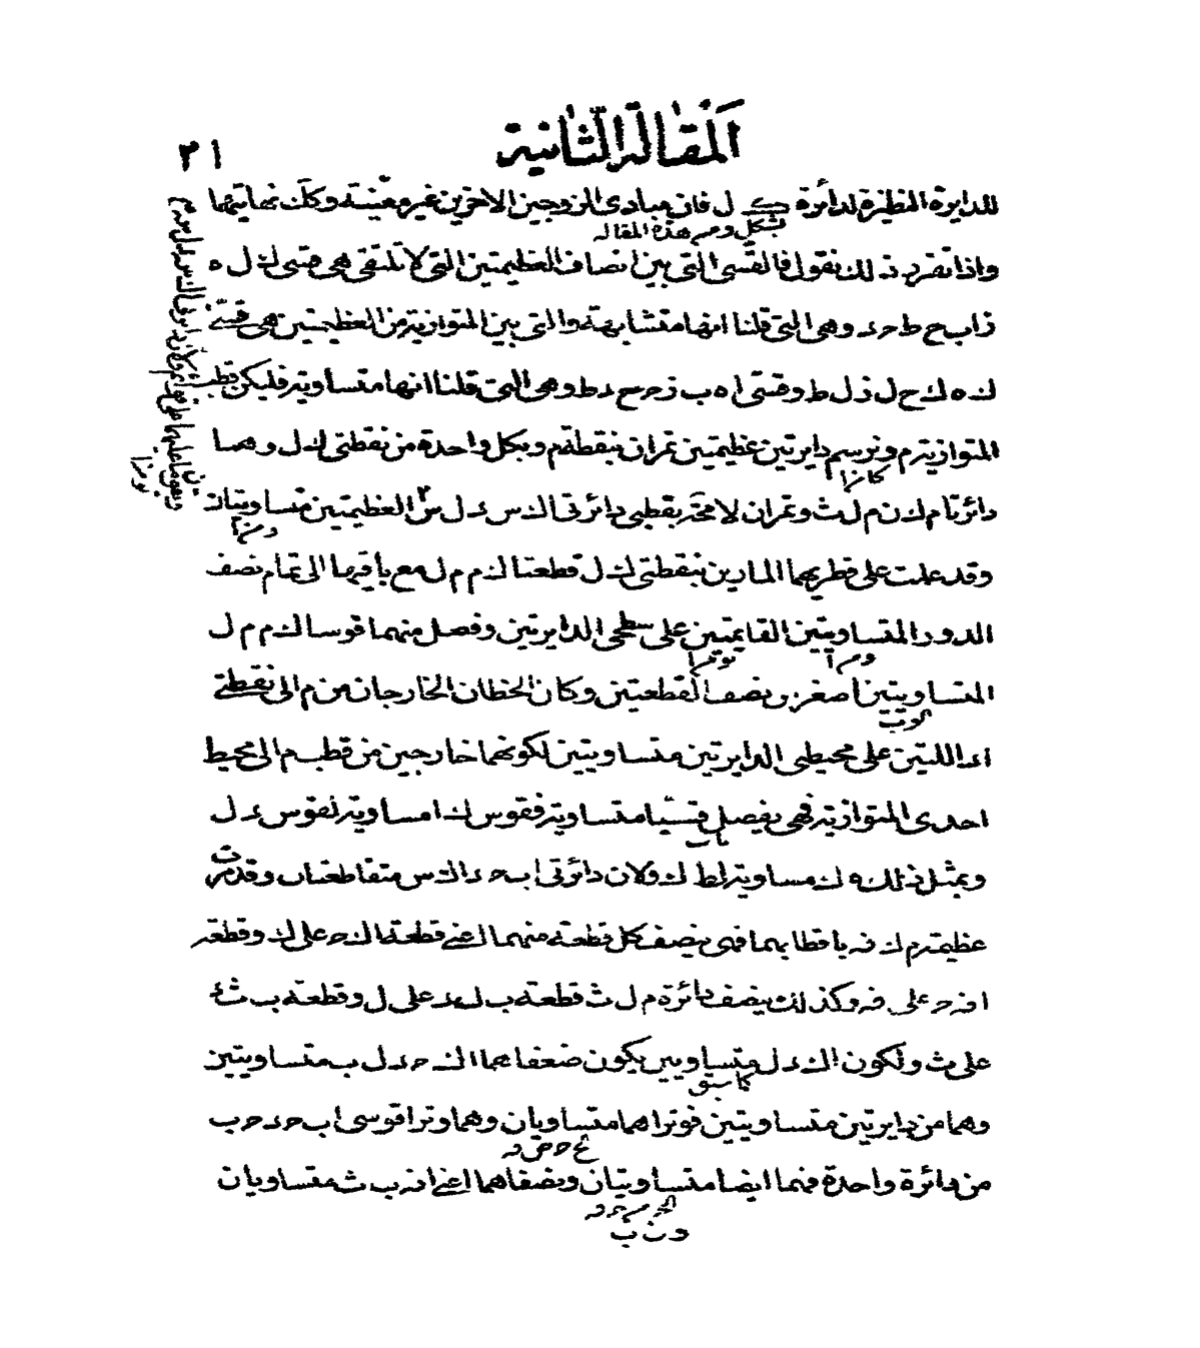 المقالة الثانية
٢١
للدايرة النظيرة لدائرة ك ل فان مبادى الزوجين الاخرين غير معينة وكك نهايتهما
بشكل و من هذه المقاله
واذا تقرر ذلك نقول فالقسى التى بين انصاف العظيمتين التى لا تلتقى هى قسى ك ل ه
ز ا ب ح ط ح د وهى التى قلنا انها متشابهة والتى بين المتوازية من العظيمتين هى قسى
ك ه ك ح ل ز ل ط وقسى ا ه ب ز ح ح د ط وهى التى قلنا انها متساوية فليكن قطب
المتوازية م ونرسم دايرتين عظيمتين تمران بنقطة م وبكل واحدة من نقطتى ك ل وهما
دائرتا م ك ن م ل ث وتمران لا محة بقطبى دائرتى ا ك س د ل س العظيمتين متساويتان
وقد عملت على قطريهما المارين بنقطتى ك ل قطعتا ك م م ل مع باقيهما الى تمام نصف
الدور المتساويتين القايمتين على سطحى الدايرتين وفصل منهما قوسا ك م م ل
المتساويتين اصغر من نصف القطعتين وكان الخطان الخارجان من م الى نقطتى
ا د اللتين على محيطى الدايرتين متساويتين لكونهما خارجين من قطب م الى محيط
احدى المتوازية فهى يفصل قسيا متساوية فقوس ك ا مساوية لقوس د ل
وبمثل ذلك ه ك مساوية ل ط ولان دائرتى ا ب ح د ا ك س متقاطعتان وقد مرت
عظيمة م ك ف باقطابهما فهى ينصف كل قطعة منهما اعنى قطعة ا ك ح على ك وقطعة
ا ف ح على ف وكذلك ينصف دائرة م ل ث قطعة ب ل د على ل وقطعة ب ث د
على ث ولكون ا ك د ل متساويين يكون ضعفاهما ا ك ح د ل ب متساويتين
كما سبق
وهما من دايرتين متساويتين فوتراهما متساويان وهما وترا قوسى ا ب ح د ح ب
من دائرة واحدة فهما ايضا متساويتان ونصفاهما اعنى ا ف ب ث متساويان